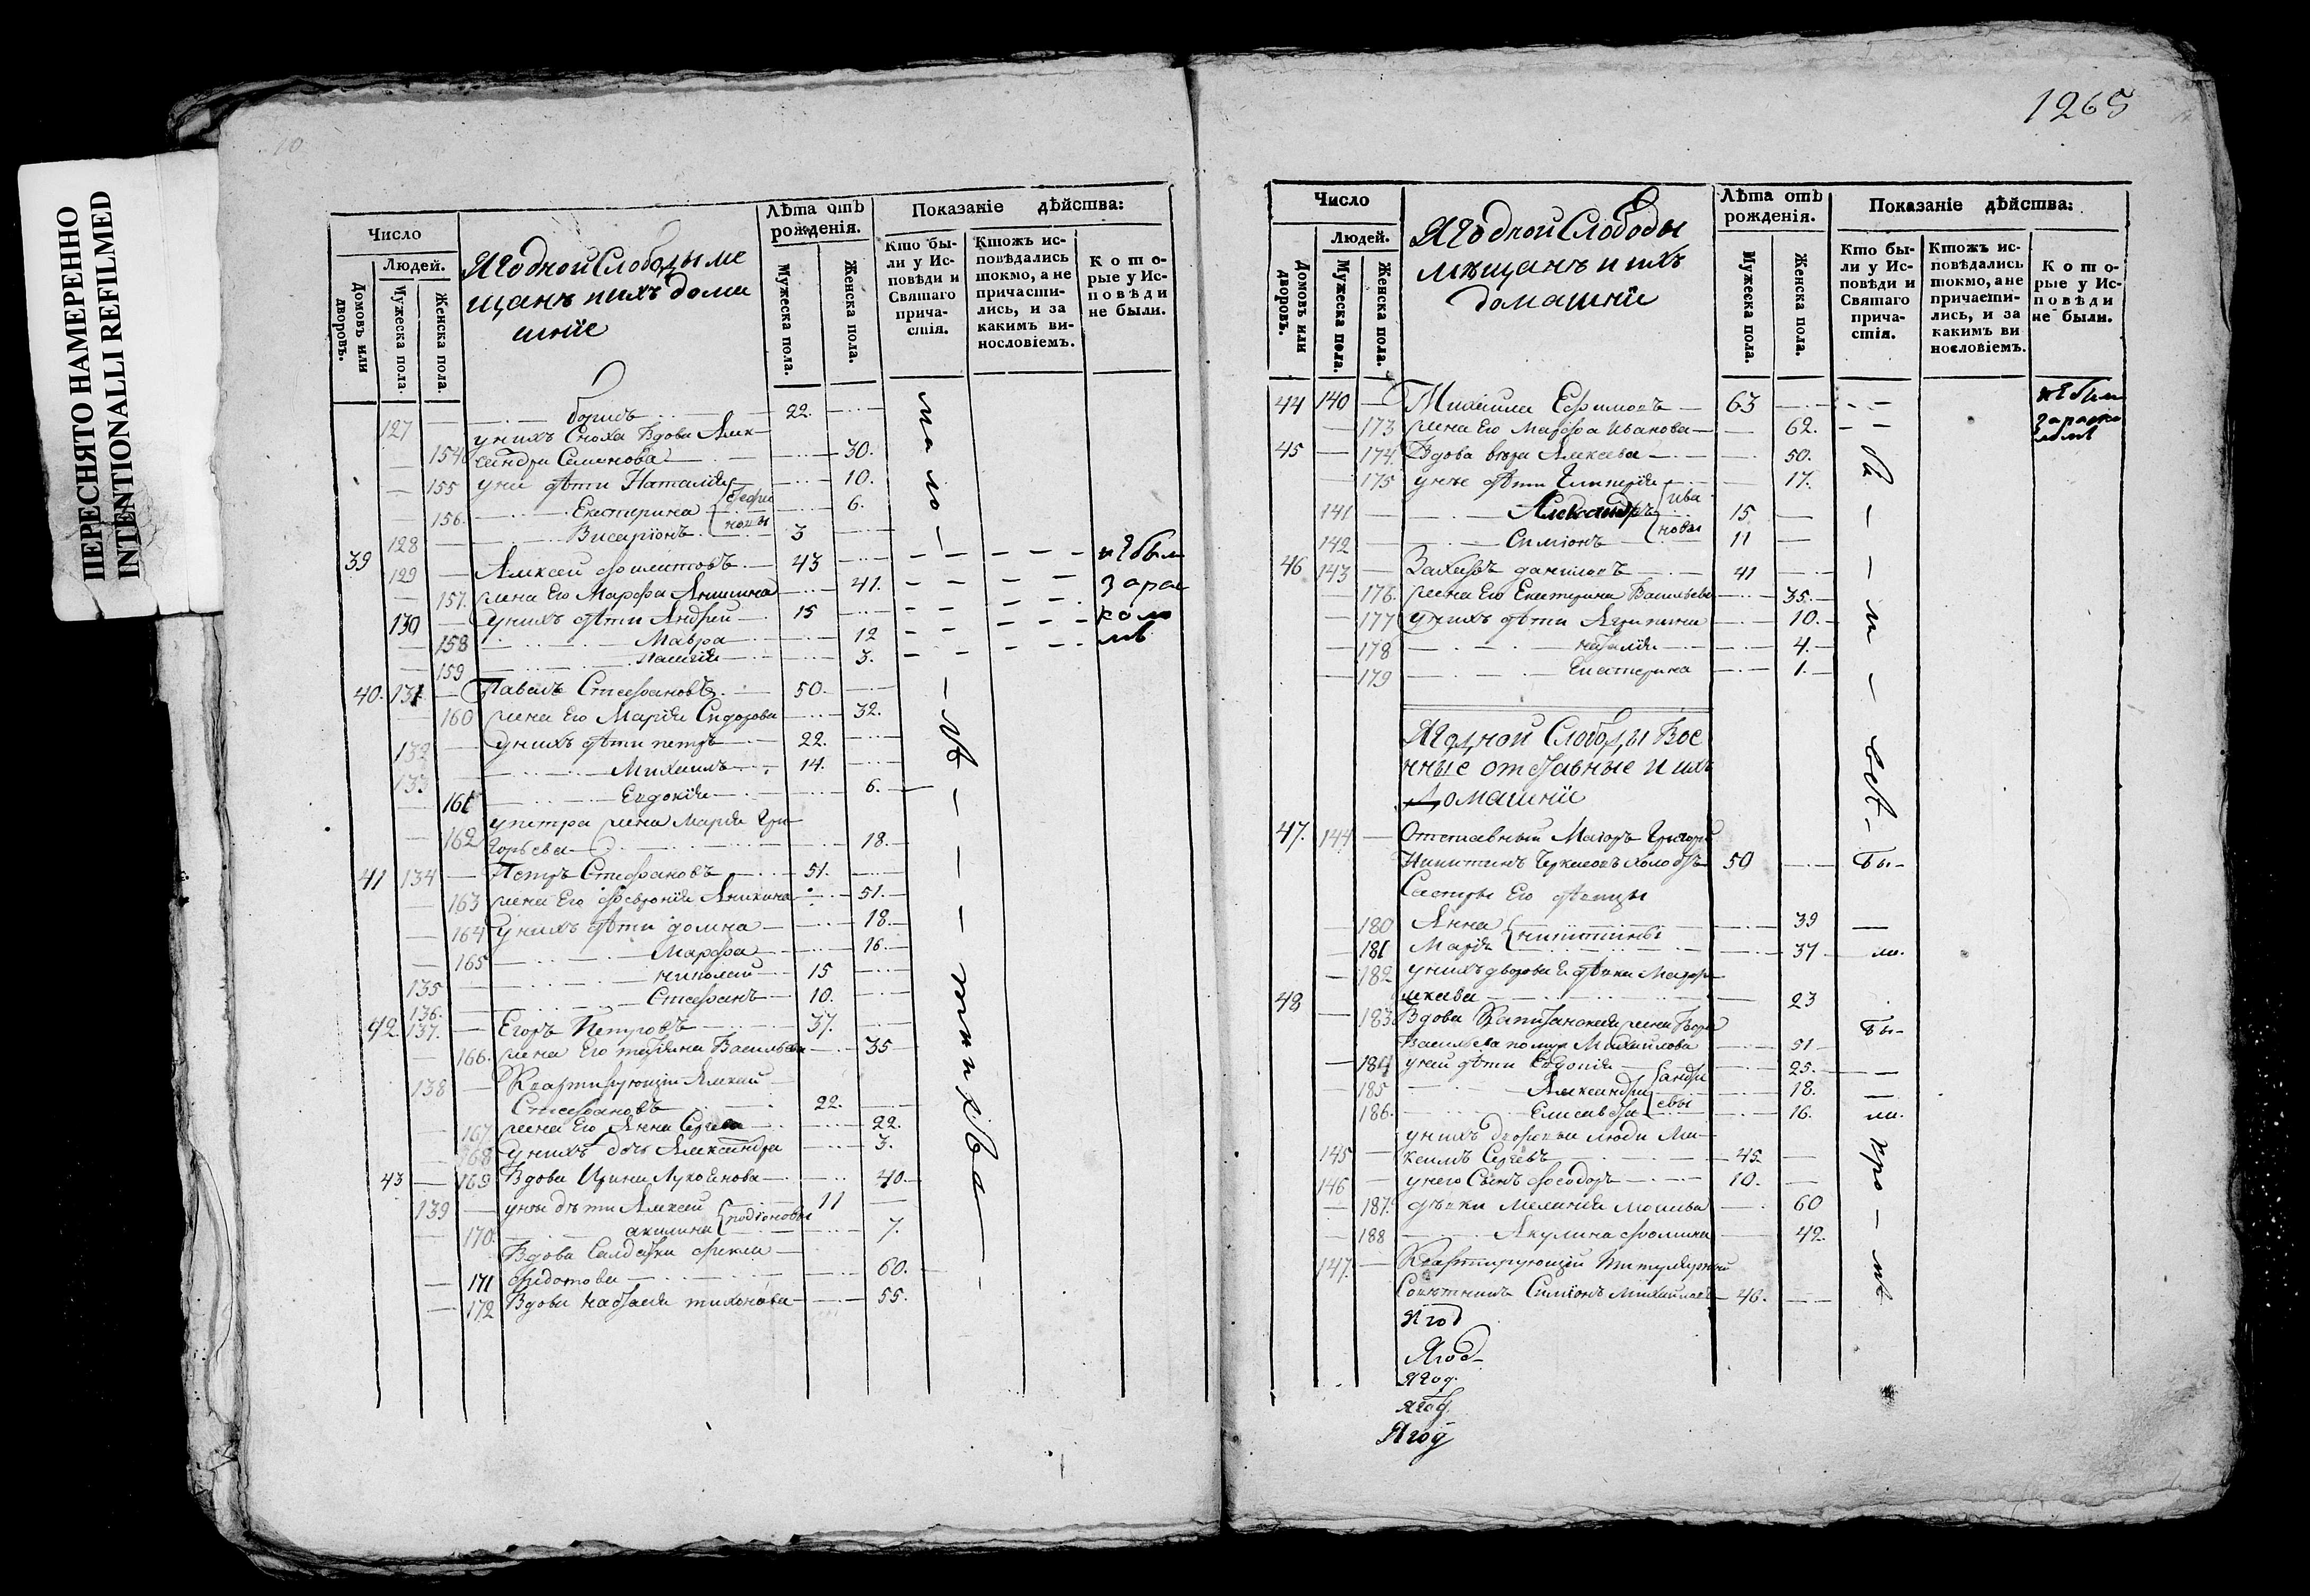 ПЕРЕСНЯТО НАМЕРЕННО
INTENTIONALLI REFILMED
10
Число
Людей.
Домовъ или дворовъ.
Мужеска пола.
Женска пола.
Ягодной Слободы ме
щанъ и ихъ дома
шніе
Лѣта отъ
рожденія.
Мужеска пола.
Женска пола.
Показаніе дѣйства:
Кто бы-
ли у Ис-
повѣди и
Святаго
прича-
стія.
Ктожъ ис-
повѣдались
токмо, а не
причасти-
лись, и за
какимъ ви-
нословіемъ.
Кото-
рые у Ис-
повѣди
не были.
127 Борисъ 22.
у нихъ Сноха Вдова Алек-
154 сандра Семенова 30.
155 у ней дѣти Наталія 10.
156. Екатерина 6.
128 Висаріонъ 3
39 129 Алексей Филитовъ 43 не был
157. жена Его Марфа Аникина 41. за рас
130 у нихъ дѣти Андрей 15 кол
158 Мавра 12 мъ
159 3.
40. 131 Павелъ Стефановъ 50.
160 жена Его Марія Сидорова 32.
132 у нихъ дѣти петръ 22.
133 Михаилъ 14.
161 Евдокія 6.
у петра жена Марія Гри-
162 горьева 18.
41 134 Петръ Стефановъ 51.
163 жена Его Февронія Аникина 51.
164 у нихъ дѣти домна 18.
165 Марфа 16.
135 николай 15
136. Стефанъ 10.
42 137. Егоръ Петровъ 37.
166. жена Его татіяна Васильева 35
138 Квартирующій Алексей
Стефановъ 22.
167 жена Его Анна Сергева 22.
168 у нихъ дочь Александра 3.
43 169 Вдова Ирина Лукоянова 40.
139 у ней дѣти Алексей родіоновы 11
170. акилина 7.
Вдова Салдатка фекла
171 федотова 60.
172 Вдова наталія тихонова 55.
1265
Число
Людей.
Домовъ или дворовъ.
Мужеска пола.
Женска пола.
Ягодной Слободы
мѣщанъ и ихъ
домашніе
Лѣта отъ
рожденія.
Мужеска пола.
Женска пола.
Показаніе дѣйства:
Кто бы-
ли у Ис-
повѣди и
Святаго
прича-
стія.
Ктожъ ис-
повѣдались
токмо, а не
причасти-
лись, и за
какимъ ви
нословіемъ.
Кото-
рые у Ис-
повѣди
не были.
44 140 Михаила Ефимовъ 63 не были
173 жена Его Марфа Иванова 62. за раско
45 174. Вдова вера Алексева 50. ломъ
175 у нее дѣти Гликерія 17.
141 Александръ ива 15
142 Симіонъ новы 11
46 143 Захаръ даниловъ 41
176. жена Его Екатерина Васильева 35.
177 у нихъ дѣти Агрипина 10.
178 наталія 4.
179 Екатерина 1.
Ягодной Слободы Вое
нные отставные и ихъ
домашніе
47. 144 Отставный Маіоръ Григорій
Никитинъ 50 Бы-
Сестры Его дѣвицы
180 Анна никитины 39
181 Марія 37 ли.
182 у нихъ дворовая дѣвка
23
48 183. Вдова Капитанская жена
Васильева Михайлова 51 Бы-
184 у ней дѣти Евдокія андре 25.
185 Александра евы 18.
186. Елисавета 16. ли.
у нихъ дворовыи люди Ма-
145 ксимъ Сергевъ 45
146 у него Сынъ феодоръ 10.
187. дѣвки Меланія 60
188 Акулина фомина 42.
147. Квартирующій Титулярный
Советникъ Симіонъ Михайловъ 46.
Ягод
Ягод
Ягод.
Ягод.
Ягод